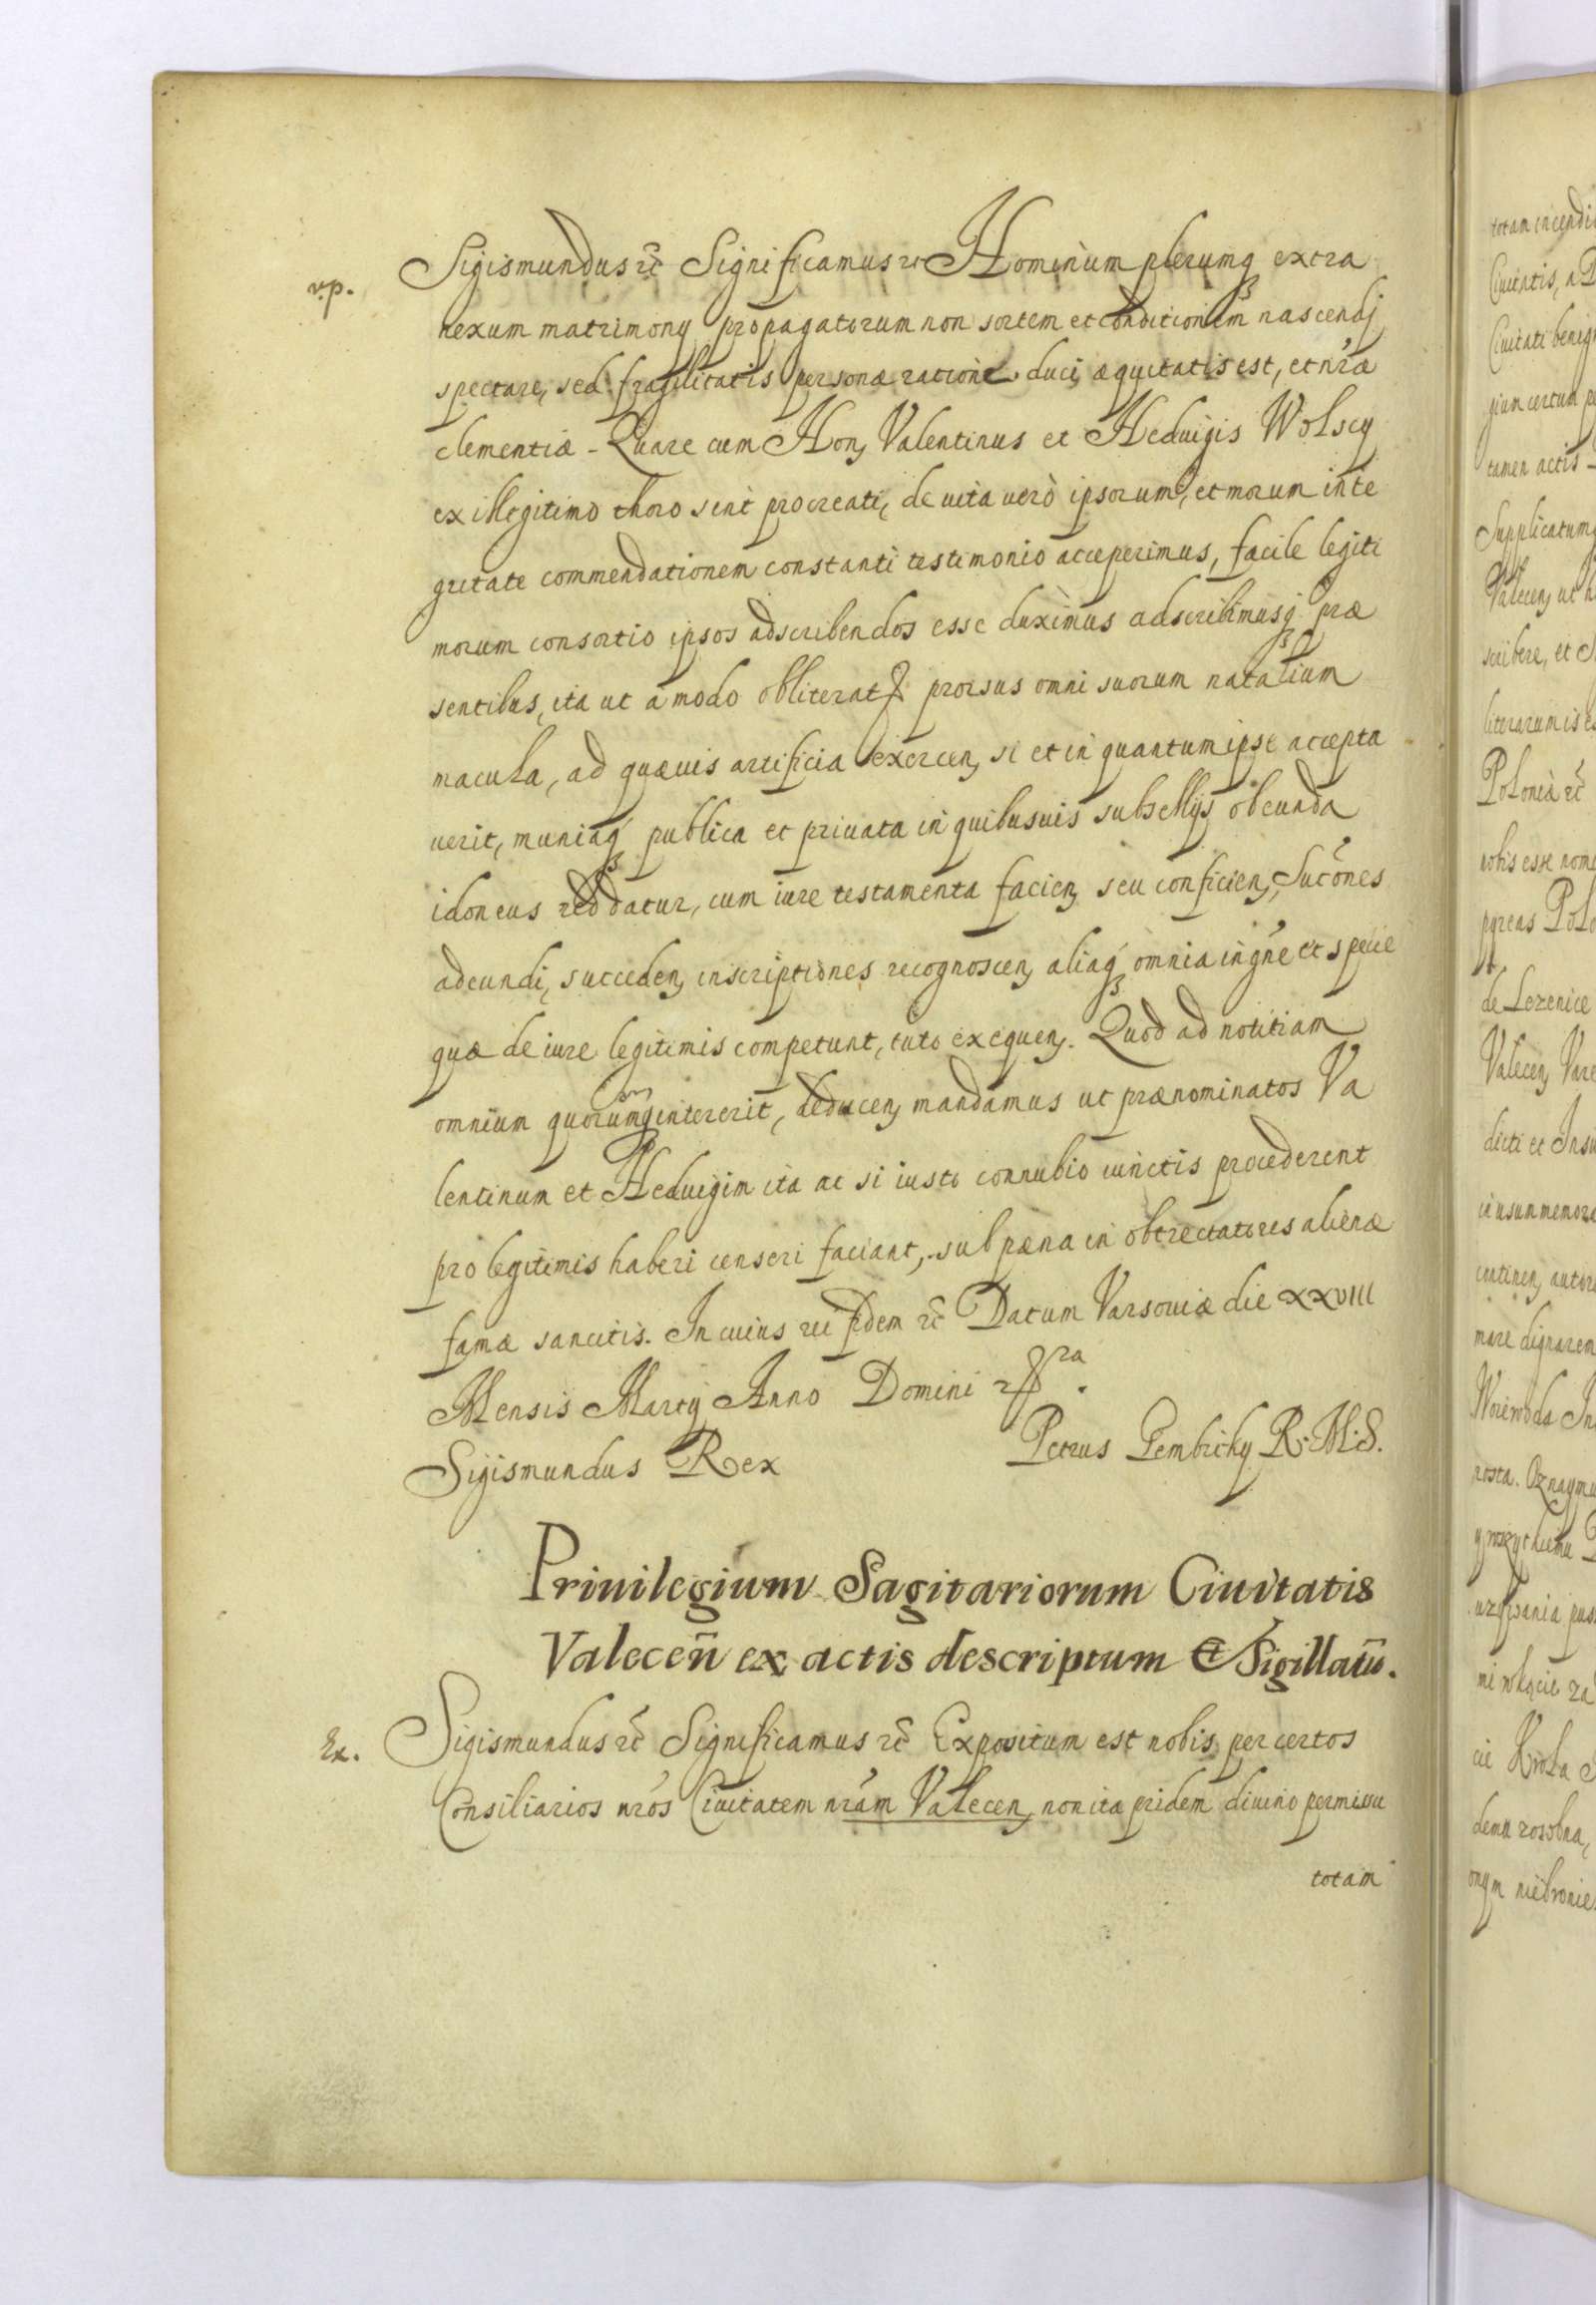 v.p.
Sigismundus etc̃ Significamus etc Hominum plerumq extra
nexum matrimonij propagatorum non sortem et conditionem nascendj
spectare, sed fragilitatis personæ ratione duci, æquitatis est, et nr̃æ
clementiæ - Quare cum Hon, Valentinus et Heduigis Wolscy
ex illegitimo thoro sint procreati, de vita verò ipsorum, et morum inte
gritate commendationem constanti testimonio acceperimus, facile legiti
morum consortio ipsos adscribendos esse duximus adscribimusq præ
sentibus, ita ut a modo obliterata prorsus omni suorum natalium
macula, ad quæuis artificia exercen, si et in quantum ipse accepta
uerit, muniaq publica et priuata in quibusuis subsellijs obeunda
idoneus reddatur, cum iure testamenta facien, seu conficien, Suc̃ones
adeundi, succeden, inscriptiones recognoscen, aliaq omnia in gñe et specie
quæ de iure legitimis competunt, tuto exequen. Quod ad notitiam
omnium quorum intererit, deducen, mandamus ut prænominatos Va
lentinum et Heduigim ita ac si iusto connubio iunctis procederent
pro legitimis haberi censeri faciant, sub pæna in obtrectatores alienæ
famæ sancitis. In cuius rei fidem etc̃ Datum Varsouiæ die XXVIII
Mensis Martij Anno Domini
Sigismundus Rex
Petrus Gembicky R. M. S.
Priuilegium Sagitariorum Ciuitatis
Valeceñ ex actis descriptum et Sigillatũ.
Ex.
Sigismundus etc̃ Significamus etc̃ Expositum est nobis per certos
Consiliarios nr̃os Ciuitatem nr̃am Valecen, non ita pridem diuino permissu
totam
totam incendi
Ciuitatis, a
Ciuitati benig
gium certum pe
tamen actis
Supplicatum
Valecen, ut
scribere, et S
literarum is
Polonia etc̃
nobis esse nom
de Lezenice
Valecen, Vare
dicti et Insu
continen, autor
mare dignarem
Woiewoda In
rosta. Oznaymu
cie Krola